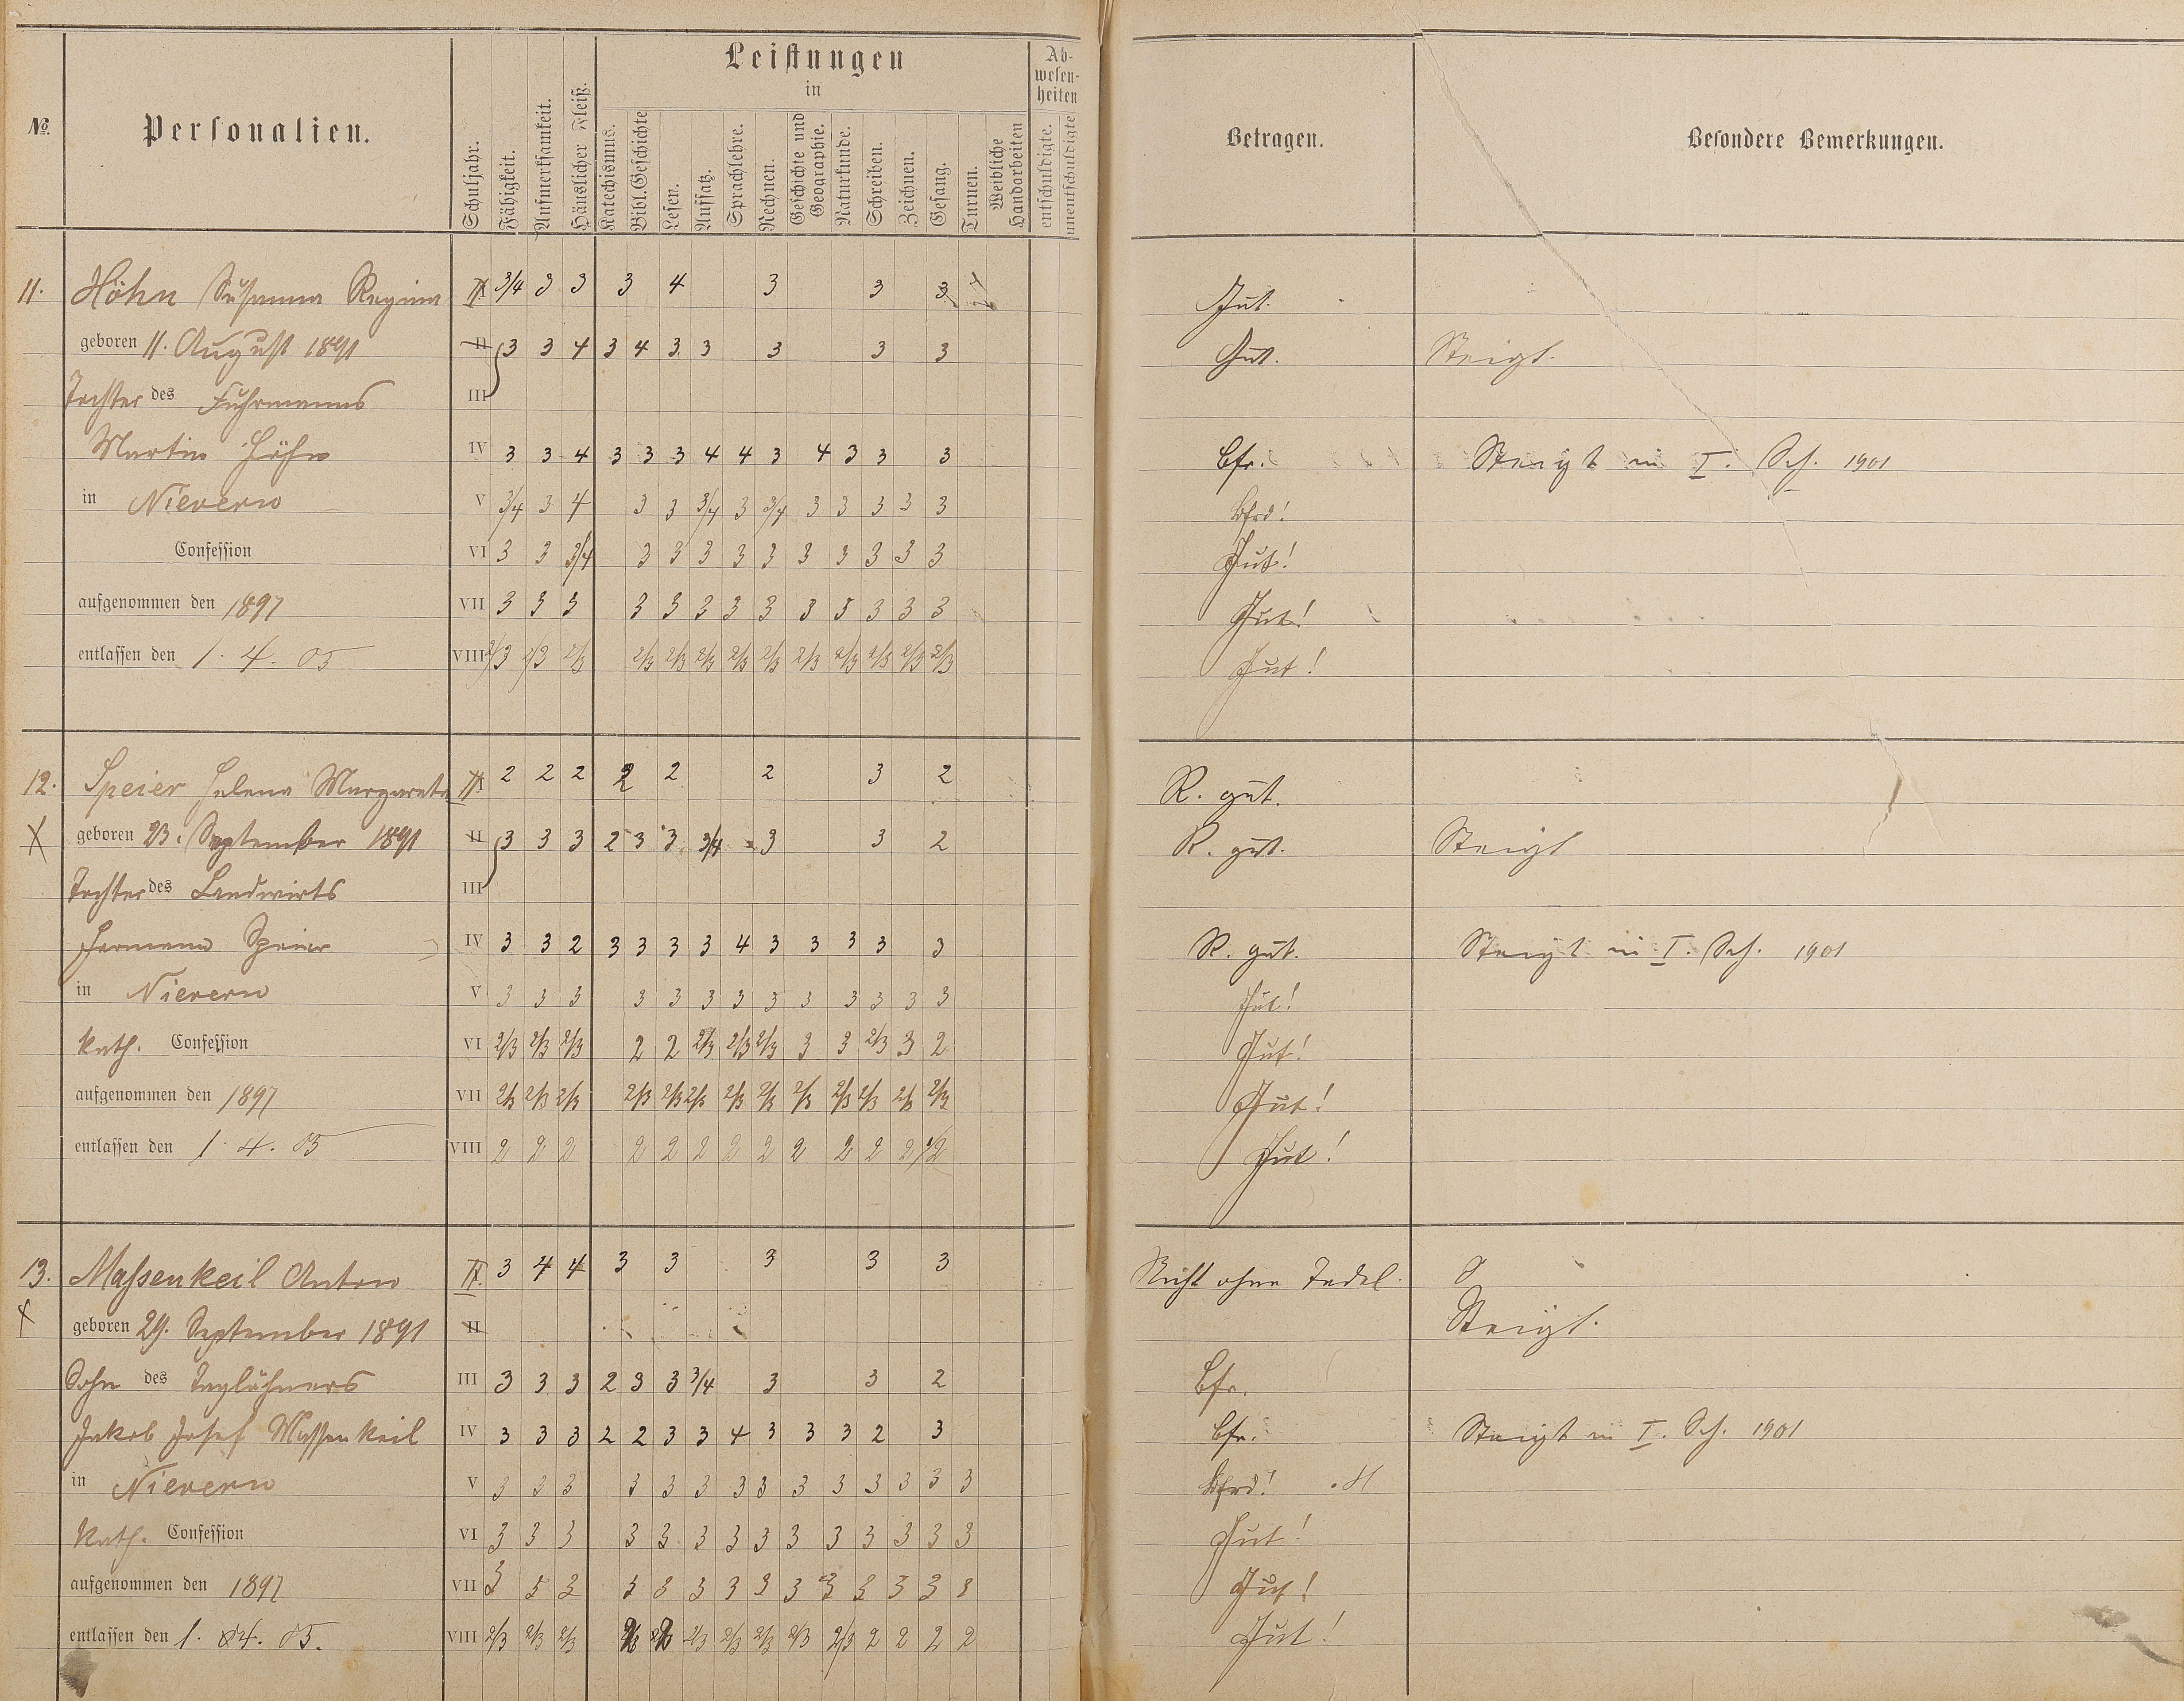 No. Personalien. Schuljahr. Fähigkeit. Aufmerksamkeit. Häuslicher Fleiß. Leistungen in Katechismus. Bibl. Geschichte Lesen. Aufsatz. Sprachlehre. Rechnen. Geschichte und Geographie. Naturkunde. Schreiben. Zeichnen. Gesang. Turnen. Weibliche Handarbeiten Ab-wesen-heiten entschuldigte. unentschuldigte Betragen. Besondere Bemerkungen.
11. Höhn Susanna Regina 3/4 3 3 3 4 3 3 3 Gut.
geboren 11. August 1891 II 3 3 4 3 4 3 3 3 3 3 Gut. Steigt.
Tochter des Fuhrmanns III
Martin Höhn IV 3 3 4 3 3 3 4 4 3 4 3 3 3 Bfr. Steigt in I. Sch. 1901
in Nievern V 3/4 3 4 3 3 3/4 3 3/4 3 3 3 3 3 Bfrd!
Confession VI 3 3 3/4 3 3 3 3 3 3 3 3 3 3 Gut!
aufgenommen den 1897 VII 3 3 3 3 3 3 3 3 3 3 3 3 3 Gut!
entlassen den 1. 4. 05 VIII 2/3 2/3 2/3 2/3 2/3 2/3 2/3 2/3 2/3 2/3 2/3 2/3 2/3 Gut!
12. Speier Helena Margareta 2 2 2 2 2 2 3 2 R. gut.
X geboren 23. September 1891 II 3 3 3 2 3 3 3/4 3 3 2 R. gut. Steigt
Tochter des Landwirts III
Hermann Speier IV 3 3 2 3 3 3 3 4 3 3 3 3 3 R. gut. Steigt in I. Sch. 1901
in Nievern V 3 3 3 3 3 3 3 3 3 3 3 3 3 Gut!
kath. Confession VI 2/3 2/3 2/3 2 2 2/3 2/3 2/3 3 3 2/3 3 2 Gut!
aufgenommen den 1897 VII 2/3 2/3 2/3 2/3 2/3 2/3 2/3 2/3 2/3 2/3 2/3 2/3 2/3 Gut!
entlassen den 1. 4. 05 VIII 2 2 2 2 2 2 2 2 2 2 2 2 1/2 Gut!
13. Massenkeil Anton 3 4 4 3 3 3 3 3 Nicht ohne Tadel.
X geboren 29. September 1891 II Steigt.
Sohn des Taglöhners III 3 3 3 2 3 3 3/4 3 3 2 Bfr.
Jakob Josef Massenkeil IV 3 3 3 2 2 3 3 4 3 3 3 2 3 Bfr. Steigt in I. Sch. 1901
in Nievern V 3 3 3 3 3 3 3 3 3 3 3 3 3 3 Bfrd!
Kath. Confession VI 3 3 3 3 3 3 3 3 3 3 3 3 3 3 Gut!
aufgenommen den 1897 VII 3 3 3 3 3 3 3 3 3 3 3 3 3 3 Gut!
entlassen den 1. 4. 05. VIII 2/3 2/3 2/3 2/3 2/3 2/3 2/3 2/3 2/3 2/3 2 2 2 2 Gut!